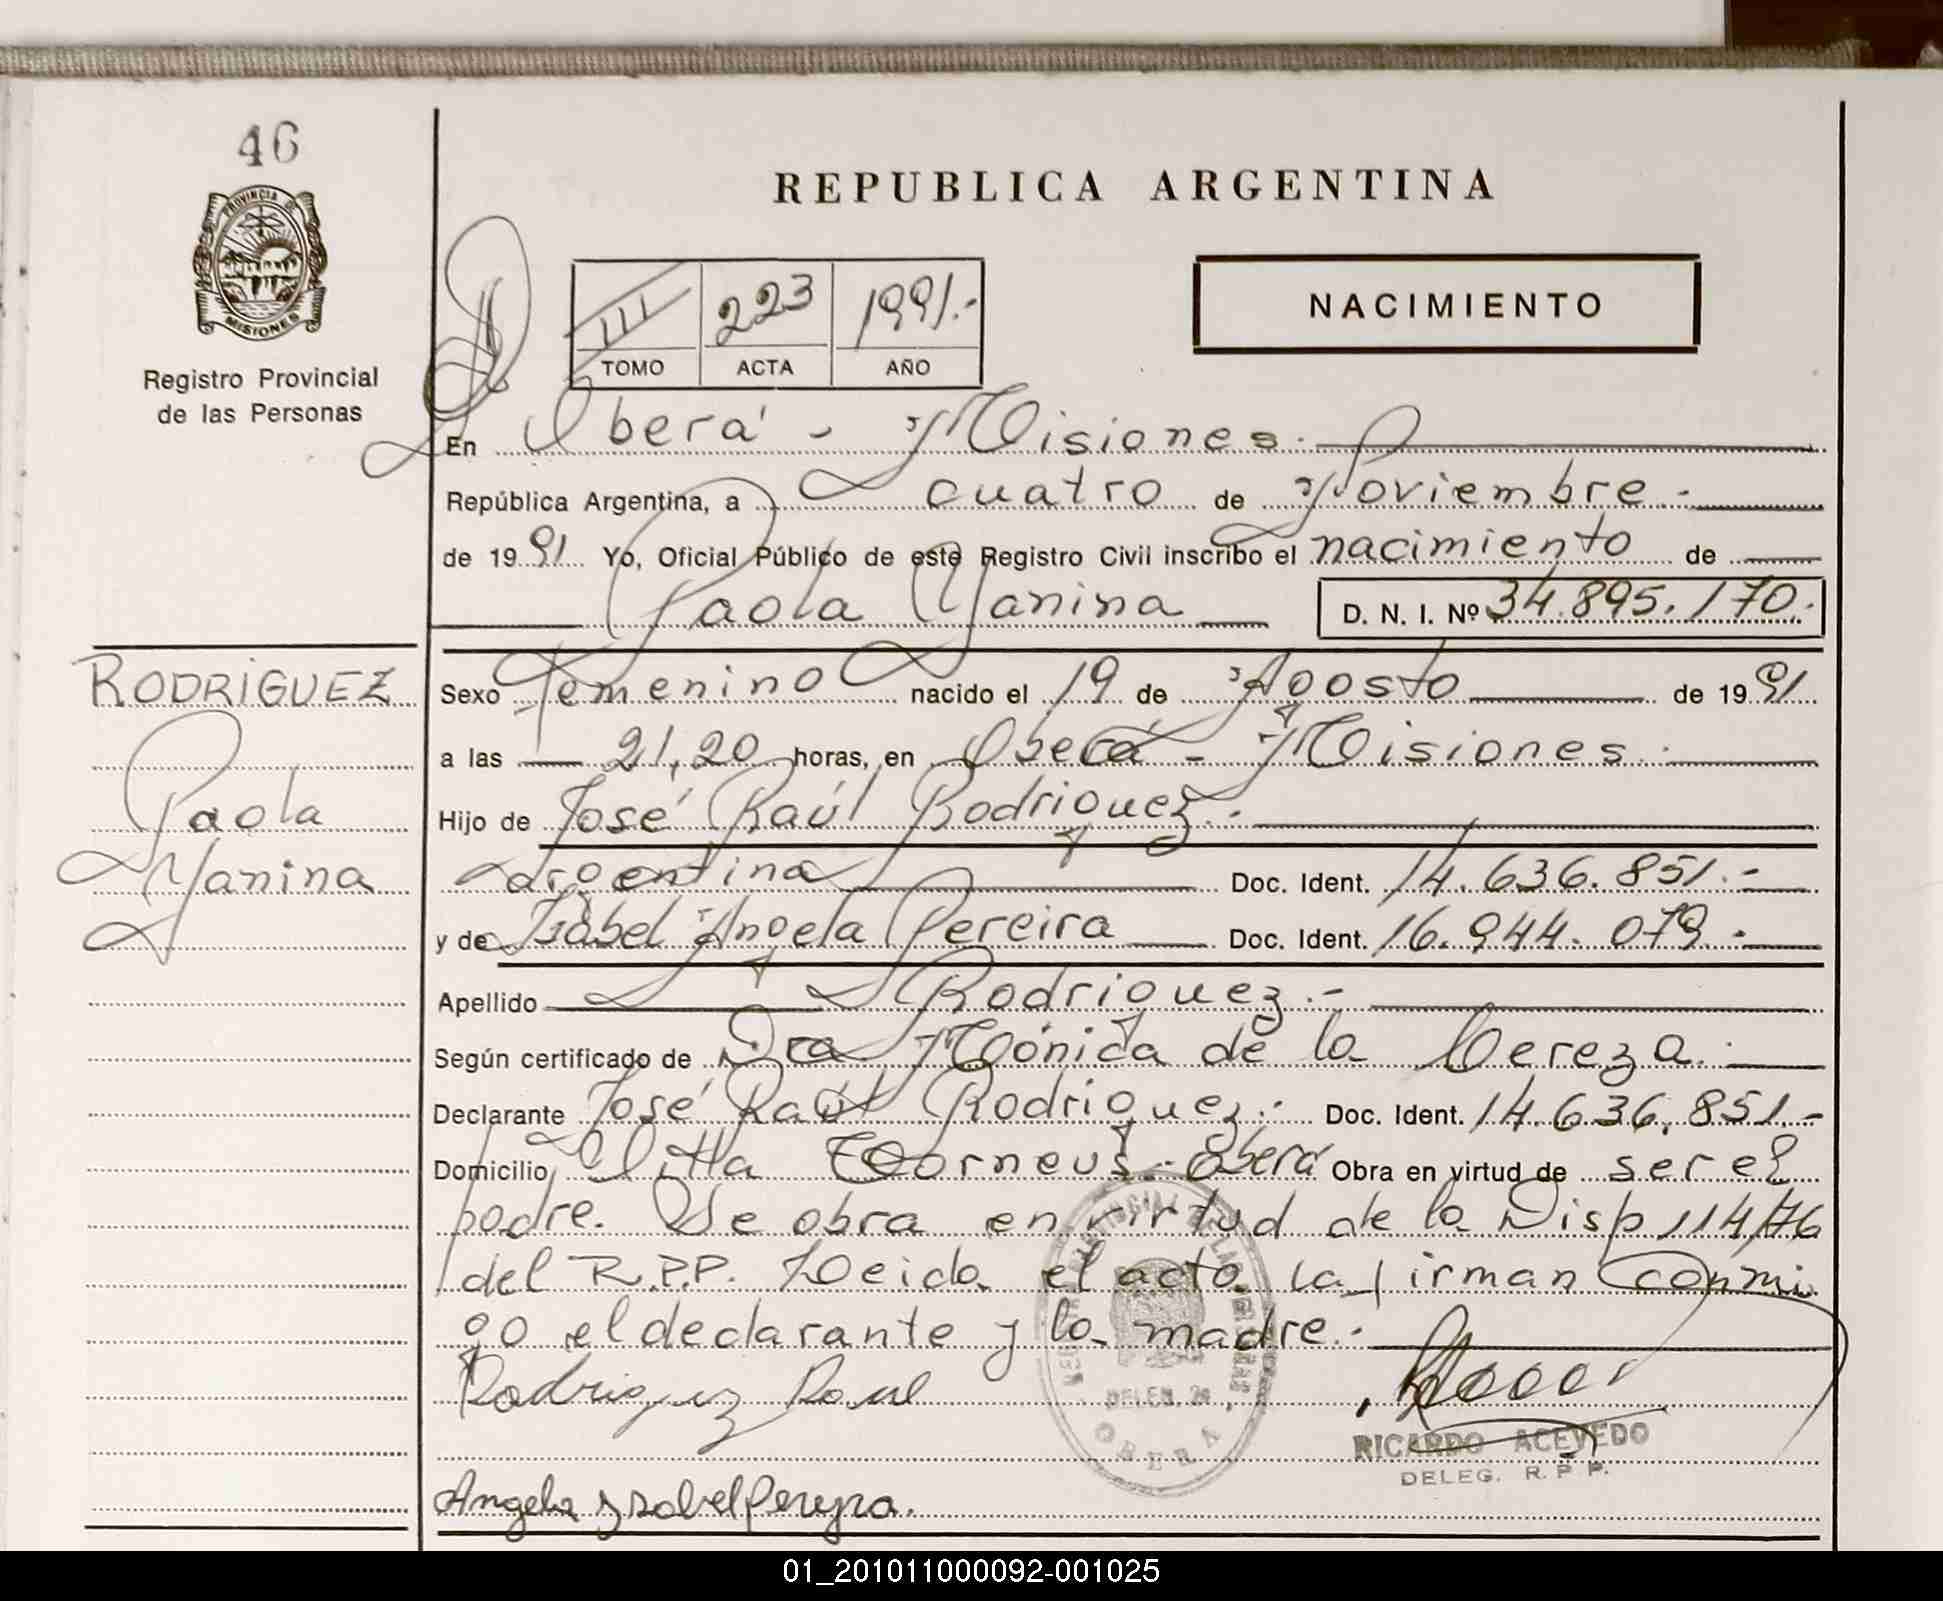 46
PROVINCIA D
MISIONES
Registro Provincial
de las Personas
REPUBLICA ARGENTINA
III 223 1991.-
TOMO ACTA AÑO
NACIMIENTO
En Oberá - Misiones.
República Argentina, a cuatro de Noviembre.-
de 1991 Yo, Oficial Público de este Registro Civil inscribo el nacimiento de
Paola Yanina D. N. I. Nº 34.895.170.
RODRIGUEZ
Paola
Yanina
Sexo Femenino nacido el 19 de Agosto de 1991
a las 21,20 horas, en Oberá - Misiones.
Hijo de José Raúl Rodriguez.-
argentina Doc. Ident. 14.636.851.-
y de Isabel Angela Pereira Doc. Ident. 16.944.079.-
Apellido Rodriguez.-
Según certificado de Dra Mónica de la
Declarante José Raúl Rodriguez.- Doc. Ident. 14.636.851.-
Domicilio Villa Torneus - Oberá Obra en virtud de ser el
padre. Se obra en virtud de la Disp 114/76
del R.P.P. Leida el acta la firman conmi
go el declarante y la madre.-
Rodriguez Raul
DELEG. 24
OBERA
RICARDO ACEVEDO
DELEG. R. P. P.
Angela Ysabel Pereyra.
01_201011000092-001025